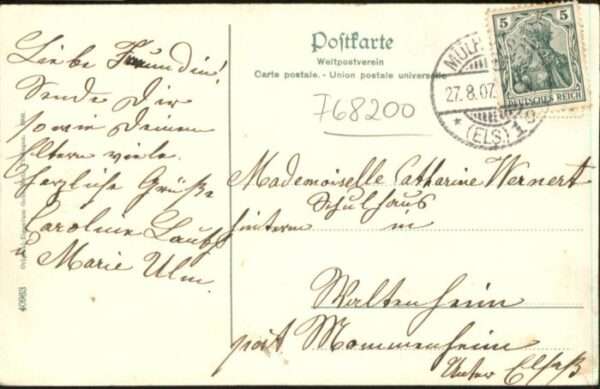 Liebe Freundin!
Sende Dir
sowie Deinen
Eltern viele
herzliche Grüße
Caroline
u Marie Ulm.
40963
Postkarte
Weltpostverein
Carte postale. - Union postale universelle
F68200
5 5
DEUTSCHES REICH
MÜLH
27.8.07.
* (ELS) 1
Mademoiselle Catharine Wernert
Schulhaus
hinterm in
Waltenheim
post Mommenheim
Unter Elsaß